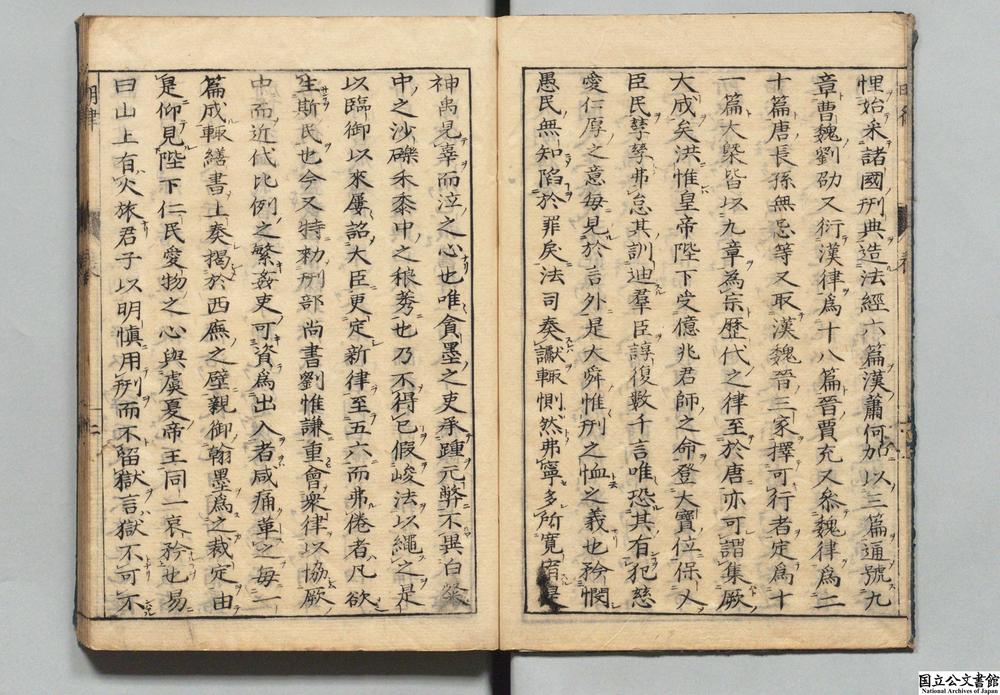 悝始采諸國刑典造法經六篇漢蕭何加以三篇通號九
章曹魏劉劭又衍漢律爲十八篇晉賈充又叅魏律爲二
十篇唐長孫無忌等又取漢魏晉三家擇可行者定爲十
一篇大槩皆以九章爲宗歷代之律至於唐亦可謂集厥
大成矣洪惟皇帝陛下受億兆君師之命登大寶位保乂
臣民孳孳弗怠其訓迪羣臣諄復數千言唯恐其有犯慈
愛仁厚之意每見於言外是大舜惟刑之恤之義也矜憫
愚民無知陷於罪戾法司奏讞輒惻然弗寧多所寬宥是
神禹見辜而泣之心也唯貪墨之吏承踵元弊不異白粲
中之沙礫禾黍中之稂莠也乃不得已假峻法以繩之是
以臨御以來屢詔大臣更定新律至五六而弗倦者凡欲
生斯民也今又特勑刑部尚書劉惟謙重會衆律以協厥
中而近代比例之繁姦吏可資爲出入者咸痛革之每一
篇成輒繕書上奏揭於西廡之壁親御翰墨爲之裁定由
是仰見陛下仁民愛物之心與虞夏帝王同一哀矜也易
曰山上有火旅君子以明慎用刑而不留獄言獄不可不
明律
國立公文書館
National Archives of Japan